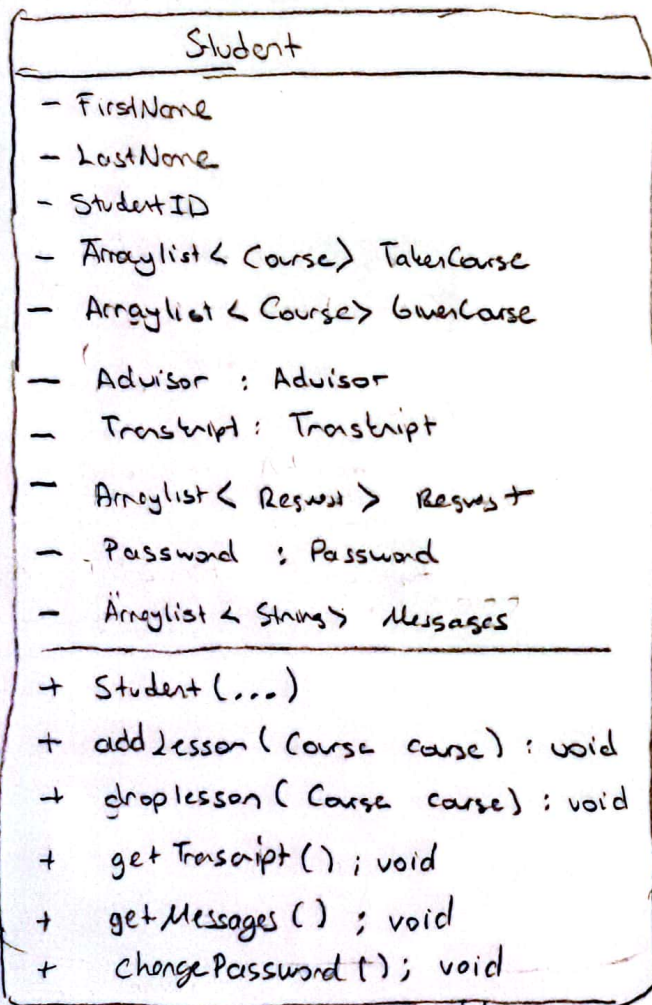 Student
- FirstName
- LastName
- StudentID
- Arraylist < Course> TakenCourse
- Arraylist < Course> GivenCourse
- Advisor : Advisor
- Transkript : Transkript
- Arraylist < Request > Request
- Password : Password
- Arraylist < String> Messages
+ Student (...)
+ addLesson ( Course course) : void
+ droplesson ( Course course) : void
+ get Trascript () ; void
+ getMessages () ; void
+ changePassword () ; void